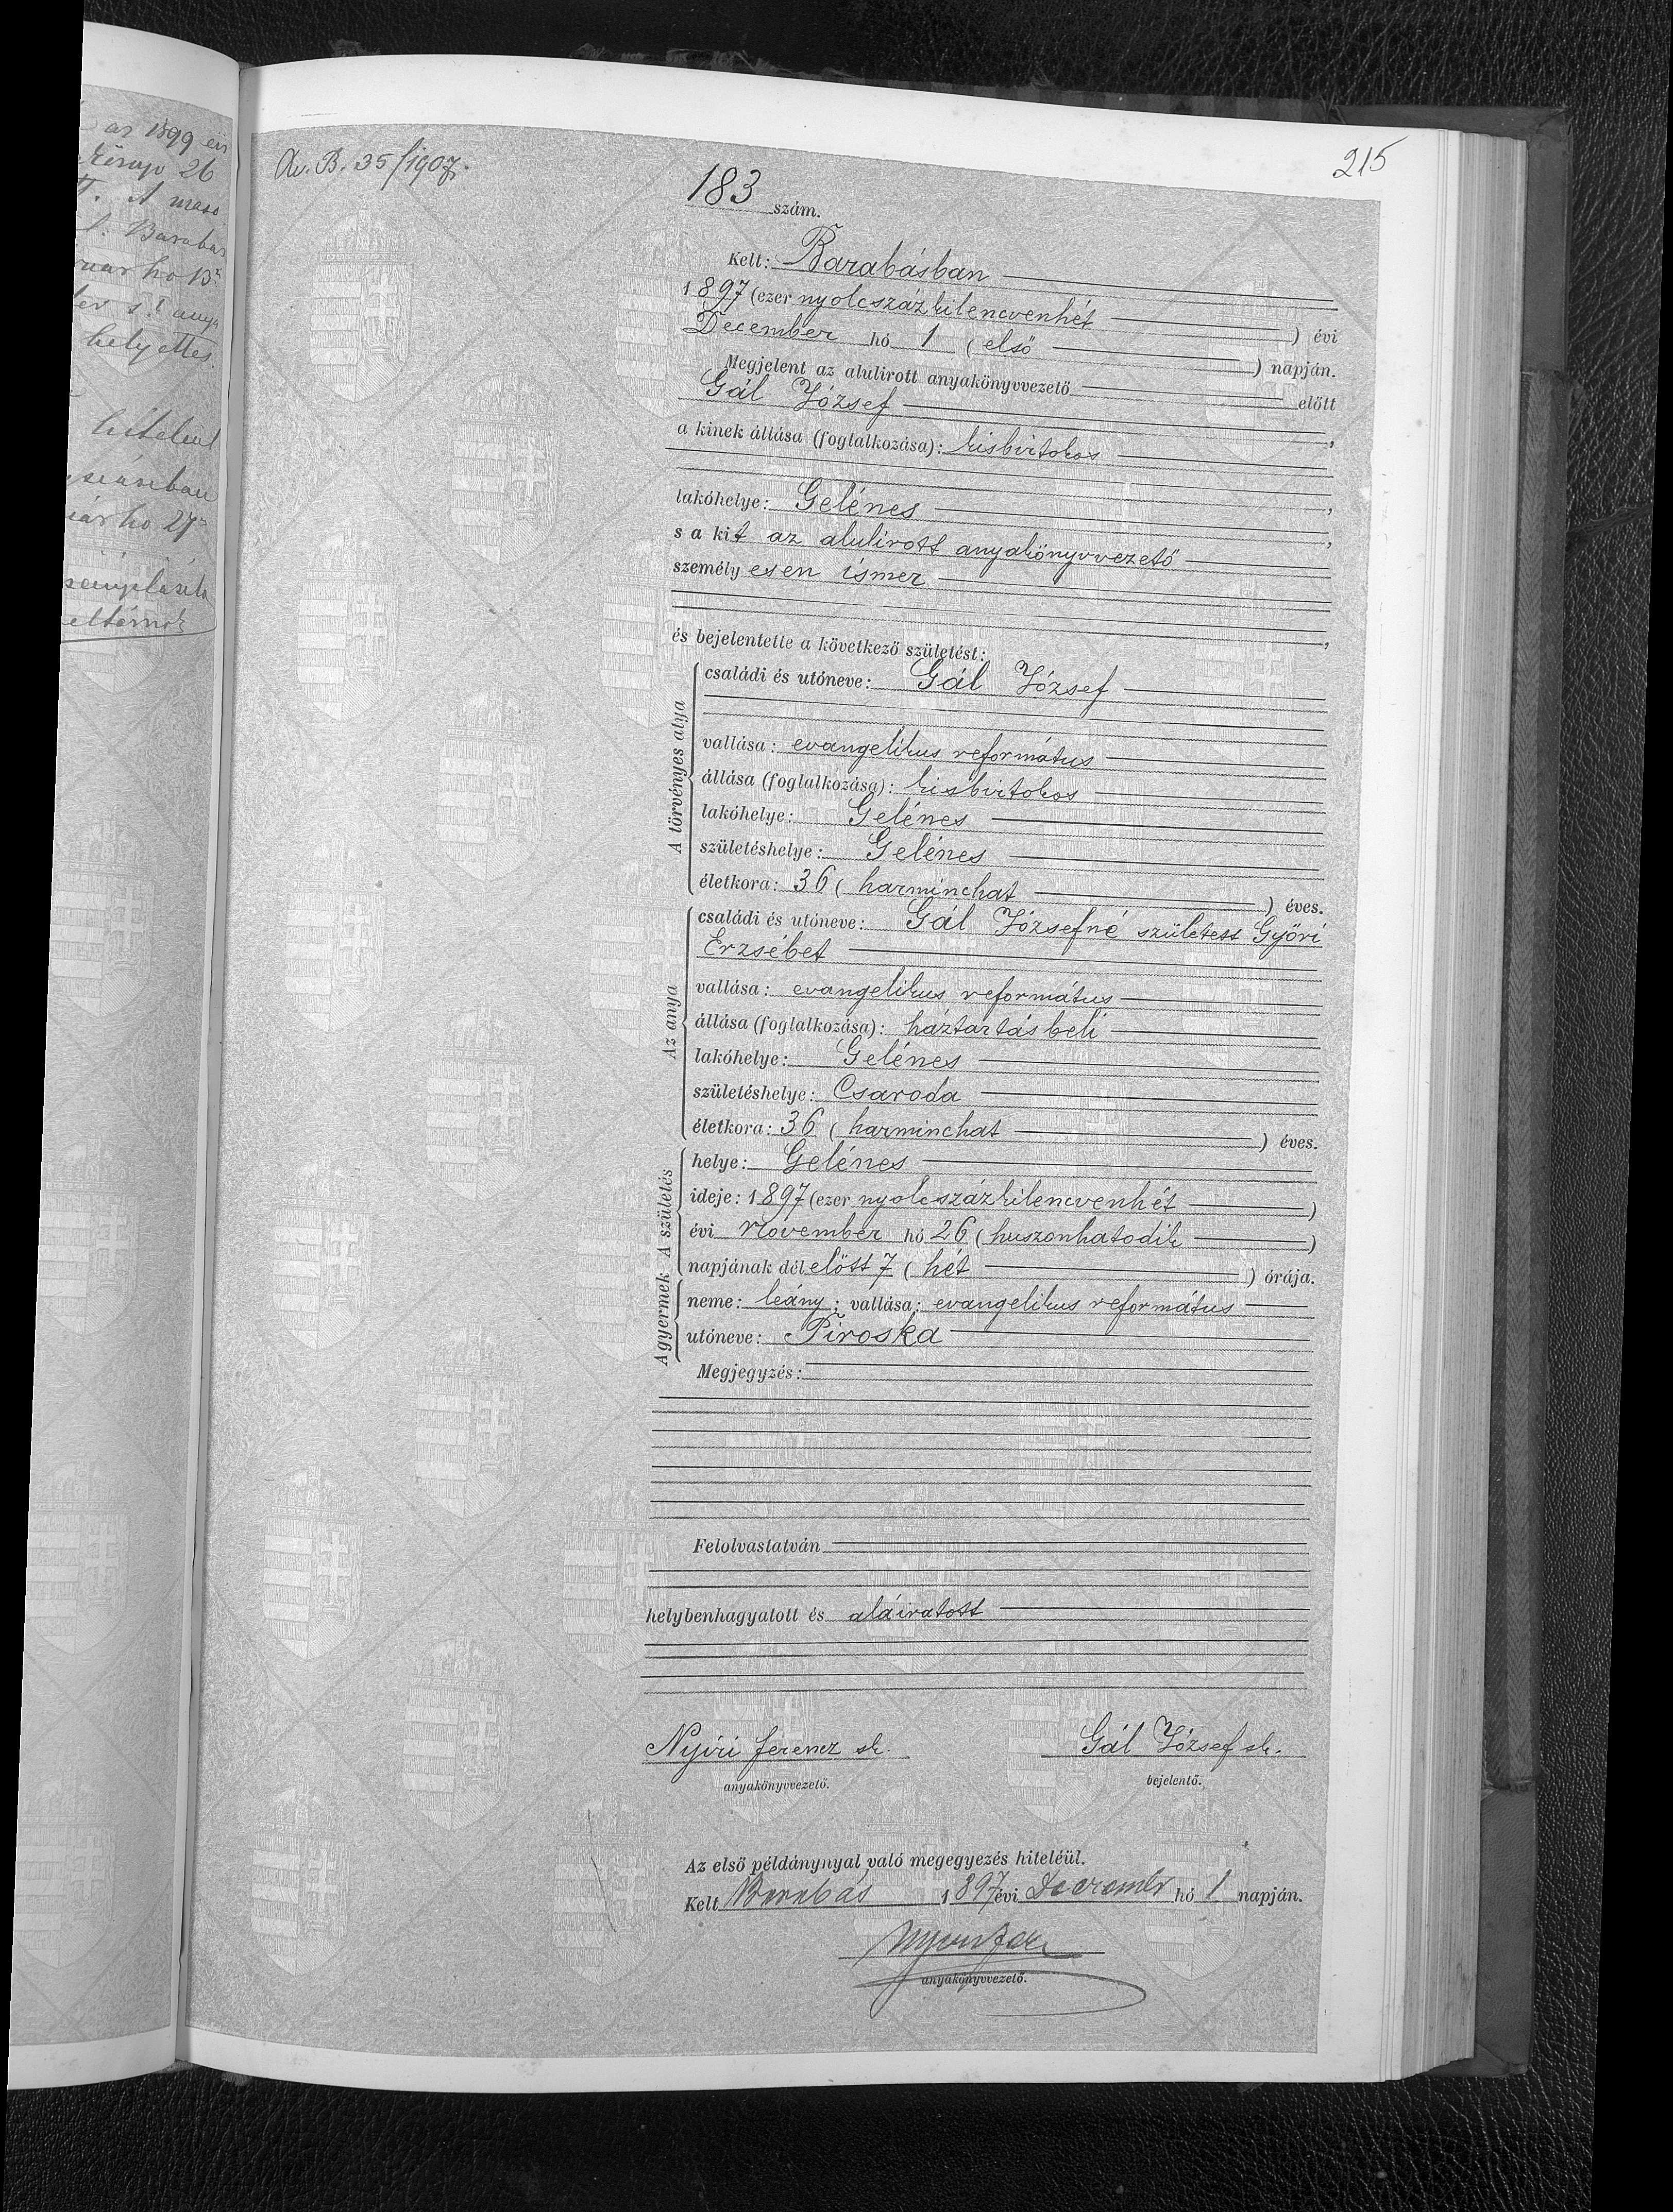 az 1899 évi
26
A maso
Barabás
uár hó 13
helyettes
hiteleul
uár hó 27
Av. B. 35/1907.
215
183 szám.
Kelt: Barabásban
1897 (ezer nyolcszázkilencvenhét ) évi
December hó 1 (első ) napján.
Megjelent az alulirott anyakönyvvezető előtt
Gál József,
a kinek állása (foglalkozása): kisbirtokos
,
lakóhelye: Gelénes,
s a kit az alulirott anyakönyvvezető
személyesen ismer
,
és bejelentette a következő születést:
A törvényes atya
családi és utóneve: Gál József
vallása: evangelikus református
állása (foglalkozása): kisbirtokos
lakóhelye: Gelénes
születéshelye: Gelénes
életkora: 36 (harminchat ) éves.
Az anya
családi és utóneve: Gál Józsefné született Győri
Erzsébet
vallása: evangelikus református
állása (foglalkozása): háztartásbeli
lakóhelye: Gelénes
születéshelye: Csaroda
életkora: 36 (harminchat ) éves.
A születés
helye: Gelénes
ideje: 1897 (ezer nyolcszázkilencvenhét )
évi november hó 26 (huszonhatodik )
napjának délelőtt 7 (hét ) órája.
A gyermek
neme: leány; vallása: evangelikus református
utóneve: Piroska
Megjegyzés:
Felolvastatván
helybenhagyatott és aláiratott
Nyíri Ferencz sk. Gál József sk.
anyakönyvvezető. bejelentő.
Az első példánynyal való megegyezés hiteléül.
Kelt Barabás 1897 évi December hó 1 napján.
anyakönyvvezető.